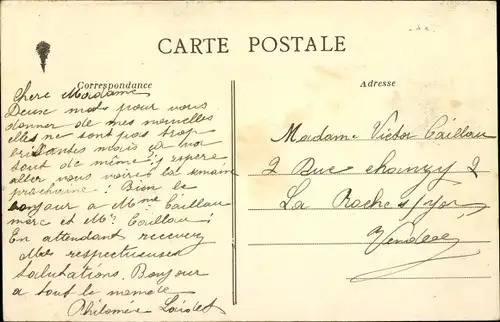 CARTE POSTALE
Correspondance
Adresse
Chere Madame
Deux mots pour vous
donner de mes nouvelles
elles ne sont pas trop
brillantes mais ça va
tout de même j'espere
aller vous voir la semaine
prochaine ! Bien le
bonjour a Mme Caillau
et Mr Caillau !
En attendant recevez
Mes respectueuses
salutations. Bonjour
a tout le monde
Philomène
Madame Victor Caillau
2 Rue chanzy 2
La Roche s/yon
Vendée